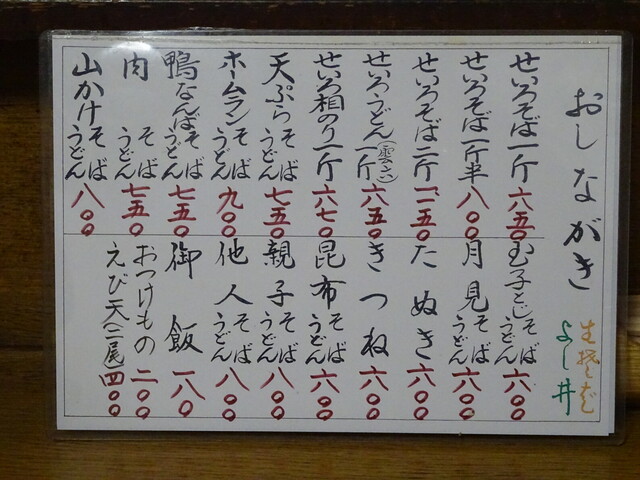 おしながき
生そば
よし井
せいろそば一斤 六五〇
せいろそば一斤半 八〇〇
せいろそば二斤 一一五〇
せいろうどん一斤 六五〇
せいろ相のり一斤 六七〇
天ぷら そば うどん 七五〇
ホームラン そば うどん 九〇〇
鴨なんば そば うどん 七五〇
肉 そば うどん 七五〇
山かけ そば うどん 八〇〇
玉子とじ そば うどん 六〇〇
月見 そば うどん 六〇〇
たぬき 六〇〇
きつね 六〇〇
昆布 そば うどん 六〇〇
親子 そば うどん 八〇〇
他人 そば うどん 八〇〇
御飯 一八〇
おつけもの 二〇〇
えび天(二尾) 四〇〇